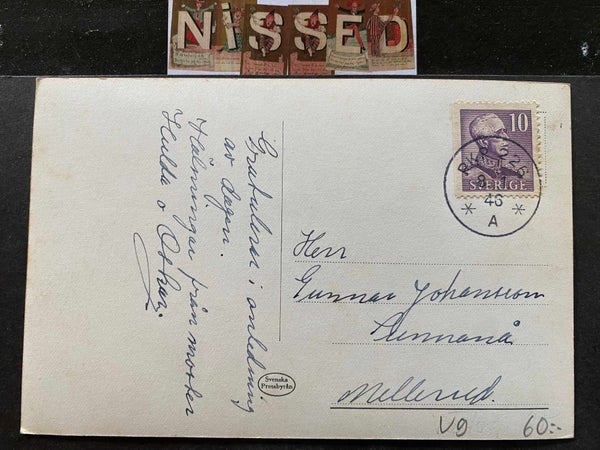 NiSSED
Gratulerar i anledning
av dagen.
Hälsningar från moster
Hulda o Oskar.
10
SVERIGE
PKP 525
46
* *
A
Herr
Gunnar Johansson
Mellerud.
Svenska
Pressbyrån
V9 60:-